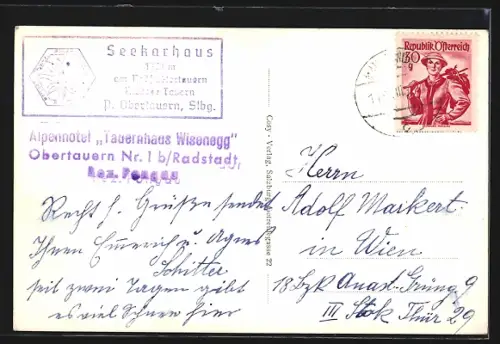 Seekarhaus
am Radstädtertauern
P. Obertauern, Slbg.
Alpenhotel „Tauernhaus Wisenegg"
Obertauern Nr. 1 b/Radstadt,
Bez. Pongau
Republik Österreich
60
g
Cosy - Verlag, Salzburg, 22
Recht h. Grüße sendet
Ihnen Emmerich u. Agnes
Schitter
seit zwei Tagen gibt
es viel Schnee hier
Herrn
Adolf Markert
in Wien
18 Bzk Anast. Grüng 9
III Stok Thür 29